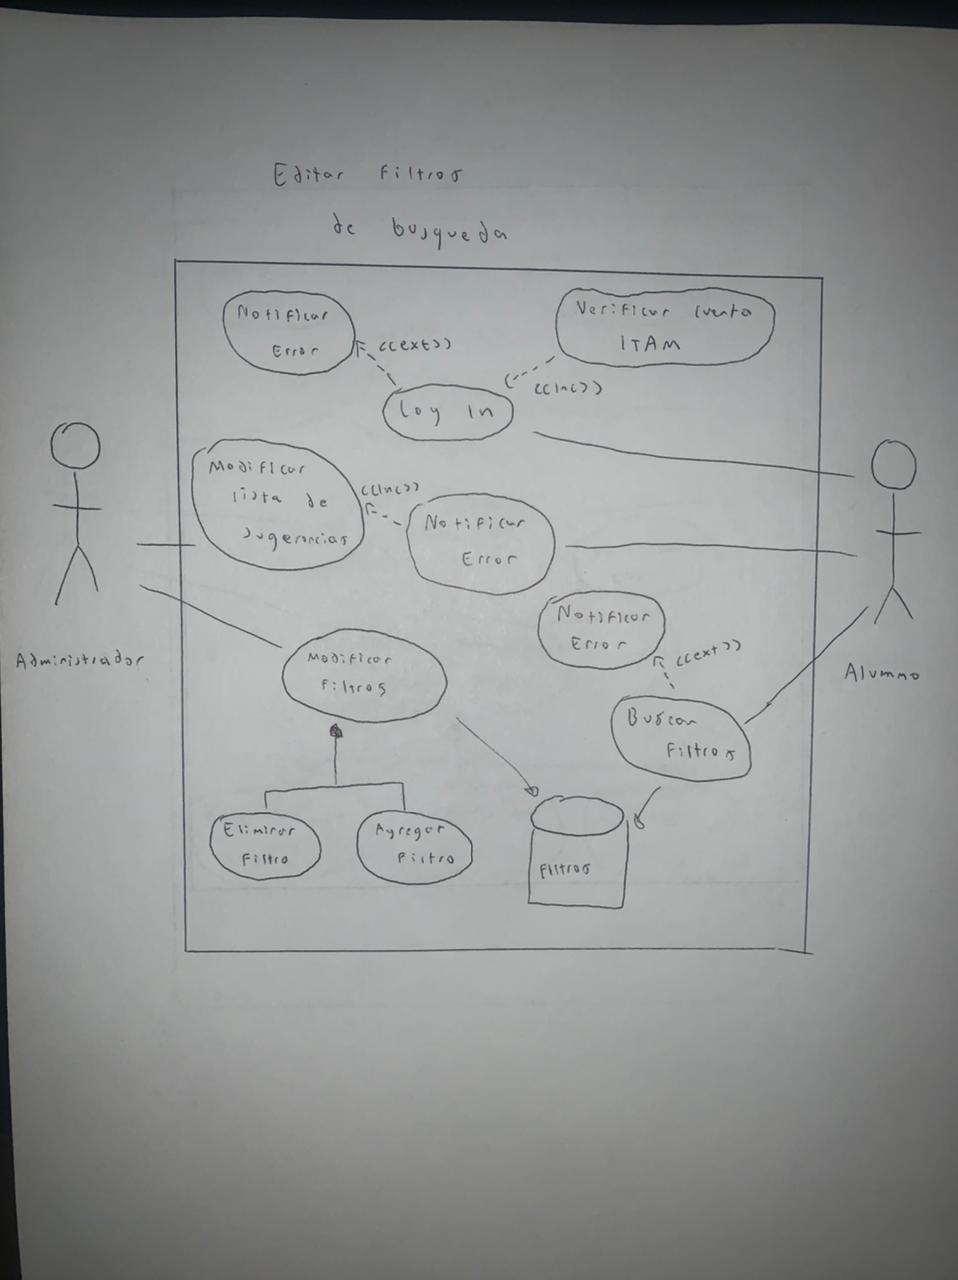 Editar Filtros
de busqueda
Notificar
Error
<<ext>>
Verificar Cuenta
ITAM
<<Inc>>
Log In
Modificar
lista de
sugerencias
<<Inc>>
Notificar
Error
Notificar
Error
<<ext>>
Modificar
Filtros
Buscar
Filtros
Administrador
Alumno
Eliminar
Filtro
Agregar
Filtro
Filtros